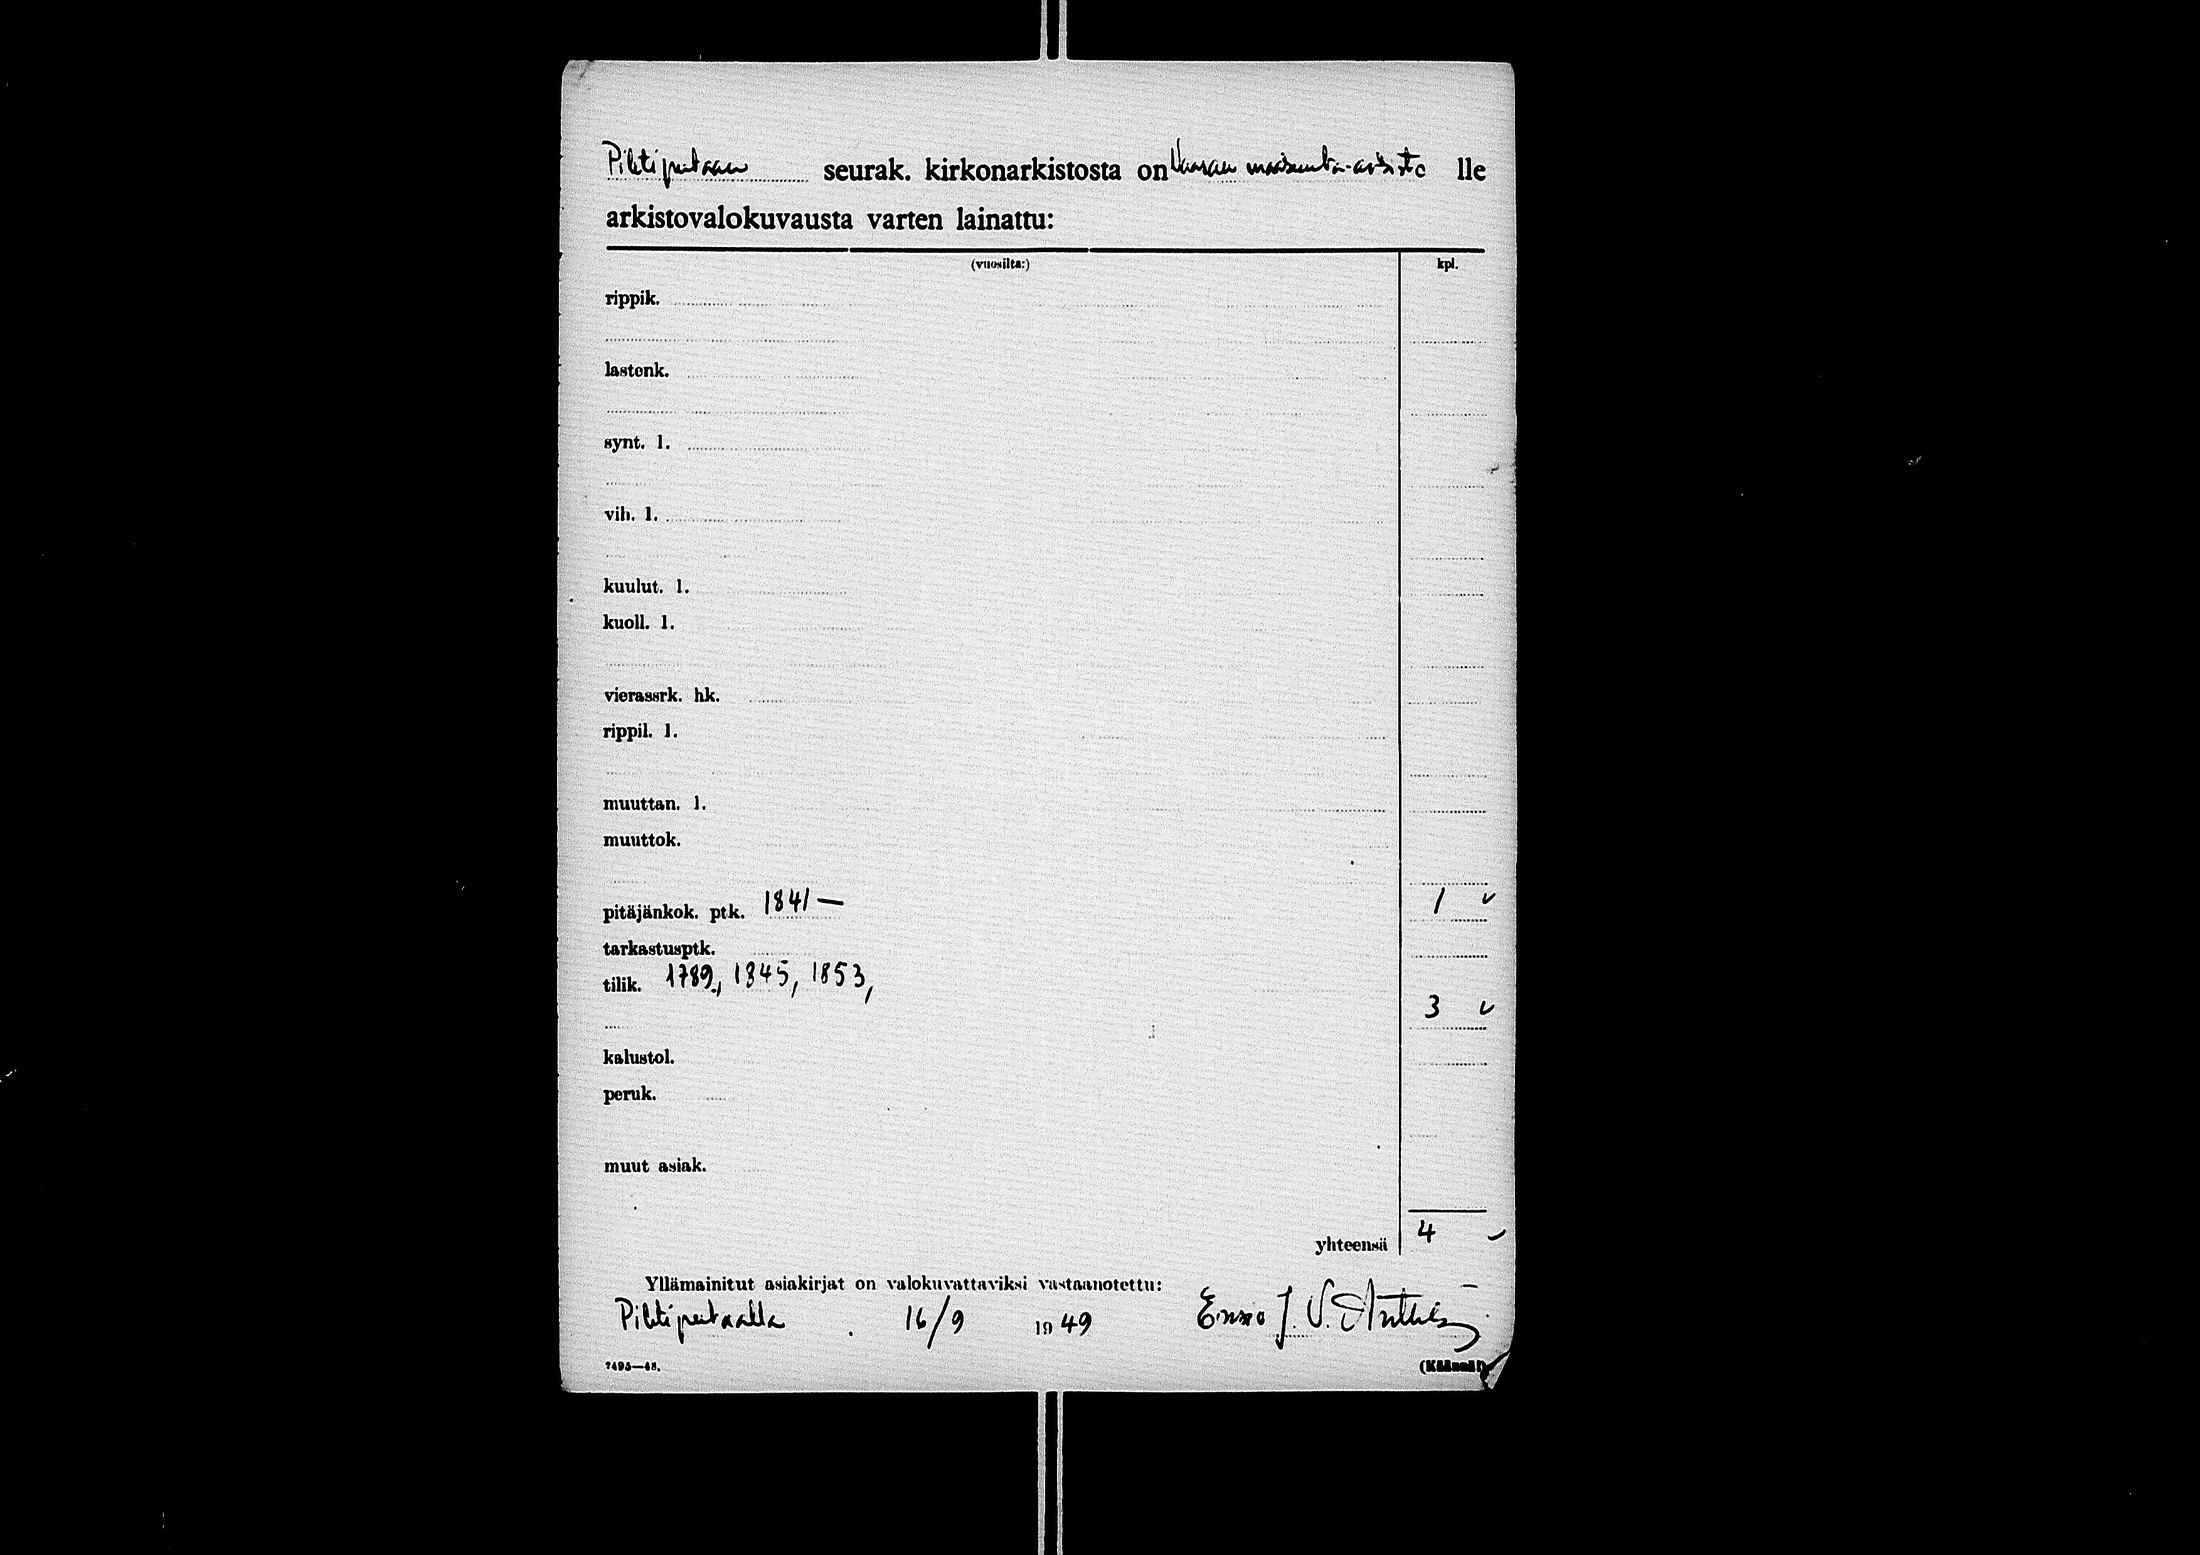 Pihtiputaan seurak. kirkonarkistosta on Vaasan maakunta-arkisto lle
arkistovalokuvausta varten lainattu:
(vuosilta:) kpl.
rippik.
lastenk.
synt. l.
vih. l.
kuulut. l.
kuoll. l.
vierassrk. hk.
rippil. l.
muuttan. l.
muuttok.
pitäjänkok. ptk. 1841— 1
tarkastusptk.
tilik. 1789, 1845, 1853, 3
kalustol.
peruk.
muut asiak.
yhteensä 4
Yllämainitut asiakirjat on valokuvattaviksi vastaanotettu:
Pihtiputaalla 16/9 1949 J. V.
7495—48. (Käännä!)